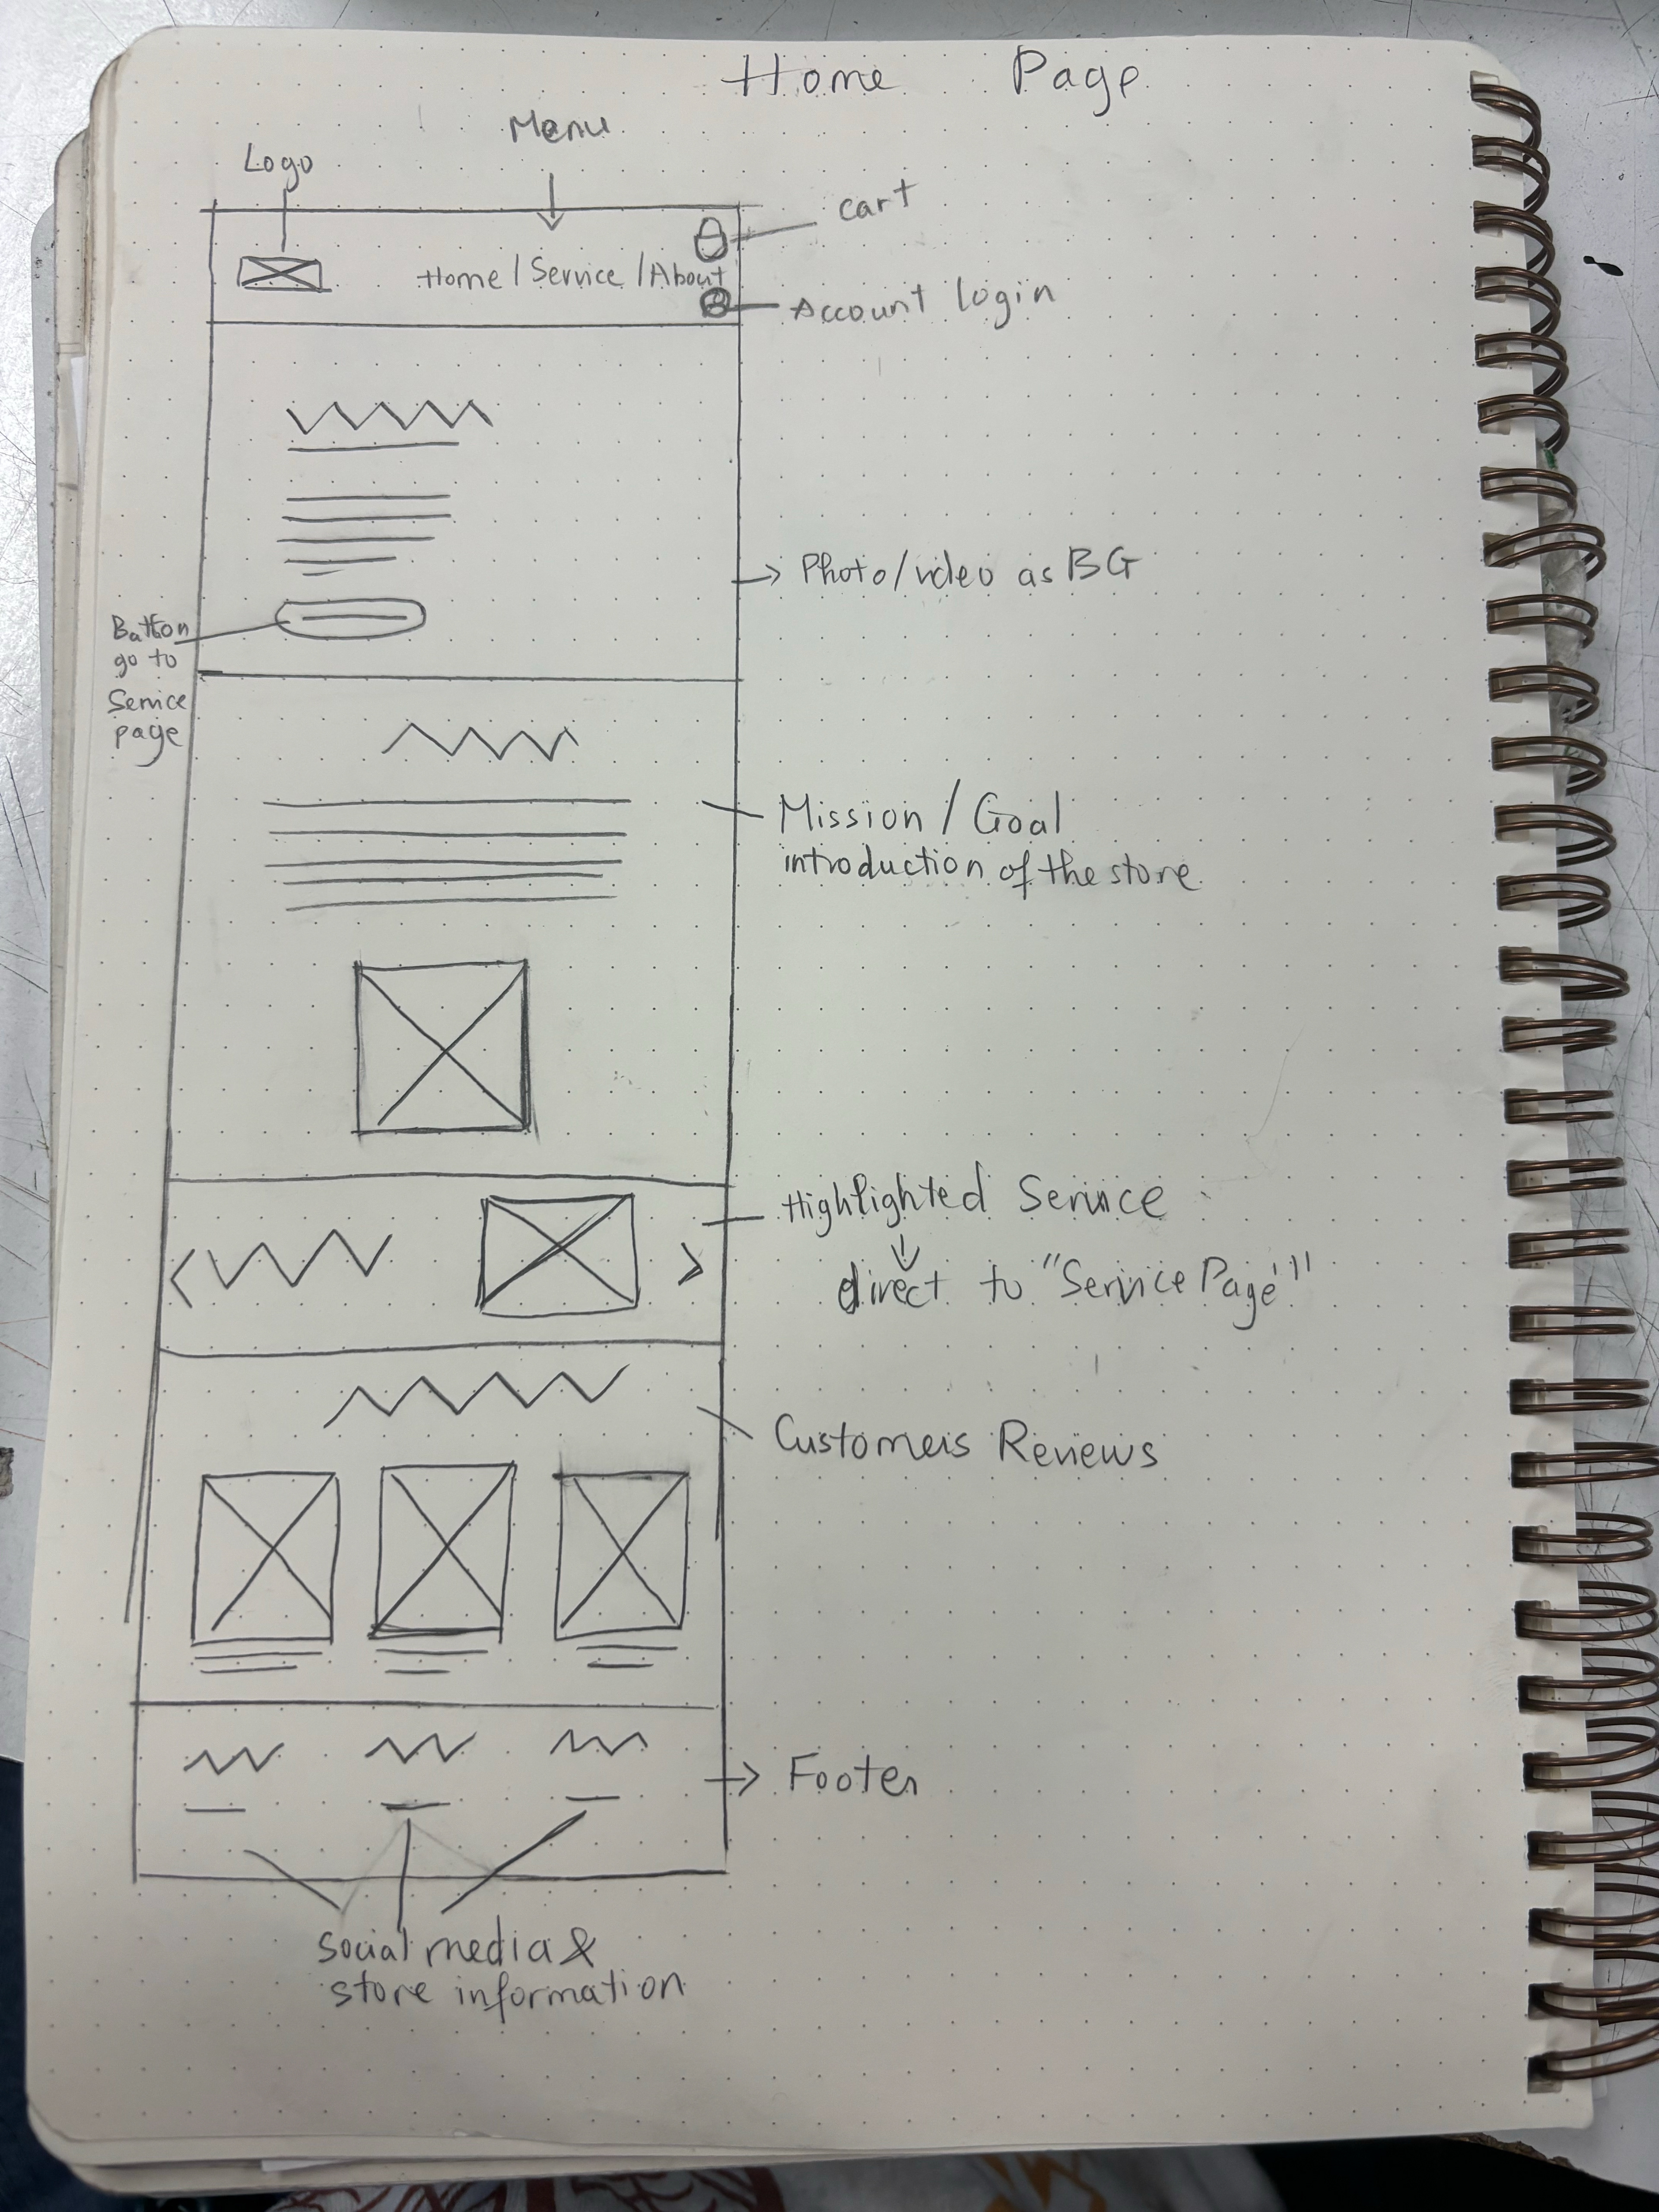 Home Page
Menu
Logo
cart
Home / Service / About
Account login
Photo/video as BG
Button
go to
Service
page
Mission / Goal
introduction of the store
Highlighted Service
direct to "Service Page"
Customers Reviews
Footer
social media &
store information